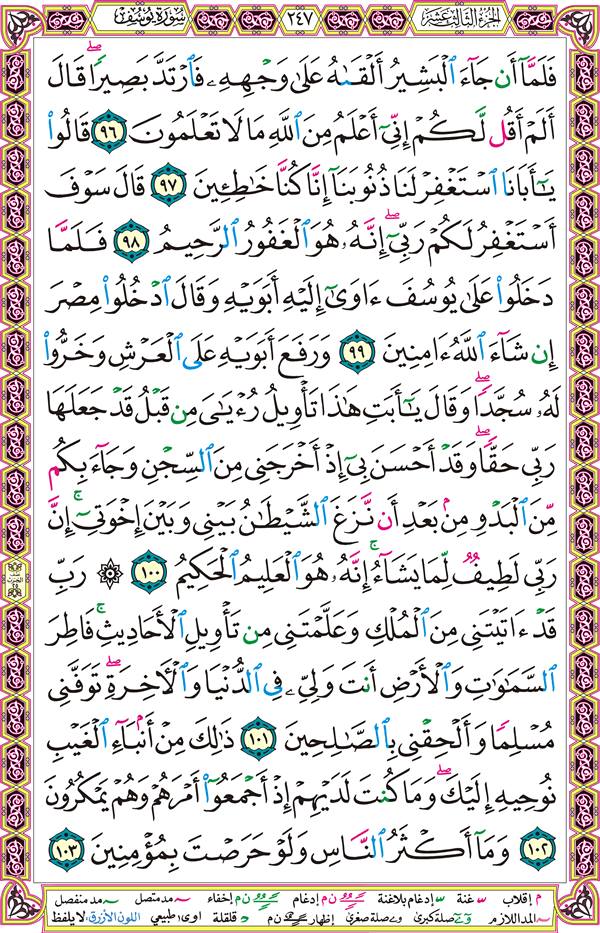 الجزء الثالث عشر ٢٤٧ سورة يوسف
فَلَمَّآ أَن جَآءَ ٱلْبَشِيرُ أَلْقَىٰهُ عَلَىٰ وَجْهِهِۦ فَٱرْتَدَّ بَصِيرًا ۖ قَالَ
أَلَمْ أَقُل لَّكُمْ إِنِّىٓ أَعْلَمُ مِنَ ٱللَّهِ مَا لَا تَعْلَمُونَ ٩٦ قَالُوا۟
يَٰٓأَبَانَا ٱسْتَغْفِرْ لَنَا ذُنُوبَنَآ إِنَّا كُنَّا خَٰطِـِٔينَ ٩٧ قَالَ سَوْفَ
أَسْتَغْفِرُ لَكُمْ رَبِّىٓ ۖ إِنَّهُۥ هُوَ ٱلْغَفُورُ ٱلرَّحِيمُ ٩٨ فَلَمَّا
دَخَلُوا۟ عَلَىٰ يُوسُفَ ءَاوَىٰٓ إِلَيْهِ أَبَوَيْهِ وَقَالَ ٱدْخُلُوا۟ مِصْرَ
إِن شَآءَ ٱللَّهُ ءَامِنِينَ ٩٩ وَرَفَعَ أَبَوَيْهِ عَلَى ٱلْعَرْشِ وَخَرُّوا۟
لَهُۥ سُجَّدًا ۖ وَقَالَ يَٰٓأَبَتِ هَٰذَا تَأْوِيلُ رُءْيَٰىَ مِن قَبْلُ قَدْ جَعَلَهَا
رَبِّى حَقًّا ۖ وَقَدْ أَحْسَنَ بِىٓ إِذْ أَخْرَجَنِى مِنَ ٱلسِّجْنِ وَجَآءَ بِكُم
مِّنَ ٱلْبَدْوِ مِنۢ بَعْدِ أَن نَّزَغَ ٱلشَّيْطَٰنُ بَيْنِى وَبَيْنَ إِخْوَتِىٓ ۚ إِنَّ
رَبِّى لَطِيفٌ لِّمَا يَشَآءُ ۚ إِنَّهُۥ هُوَ ٱلْعَلِيمُ ٱلْحَكِيمُ ١٠٠ ۞ رَبِّ
قَدْ ءَاتَيْتَنِى مِنَ ٱلْمُلْكِ وَعَلَّمْتَنِى مِن تَأْوِيلِ ٱلْأَحَادِيثِ ۚ فَاطِرَ
ٱلسَّمَٰوَٰتِ وَٱلْأَرْضِ أَنتَ وَلِىِّۦ فِى ٱلدُّنْيَا وَٱلْءَاخِرَةِ ۖ تَوَفَّنِى
مُسْلِمًا وَأَلْحِقْنِى بِٱلصَّٰلِحِينَ ١٠١ ذَٰلِكَ مِنْ أَنۢبَآءِ ٱلْغَيْبِ
نُوحِيهِ إِلَيْكَ ۖ وَمَا كُنتَ لَدَيْهِمْ إِذْ أَجْمَعُوٓا۟ أَمْرَهُمْ وَهُمْ يَمْكُرُونَ
١٠٢ وَمَآ أَكْثَرُ ٱلنَّاسِ وَلَوْ حَرَصْتَ بِمُؤْمِنِينَ ١٠٣
م إقلاب غنة إدغام بلاغنة ن م إدغام ن م إخفاء مد متصل مد منفصل
المد اللازم صلة كبرى صلة صغرى إظهار ن م قلقلة اوى طبيعي اللون الأزرق: لا يلفظ